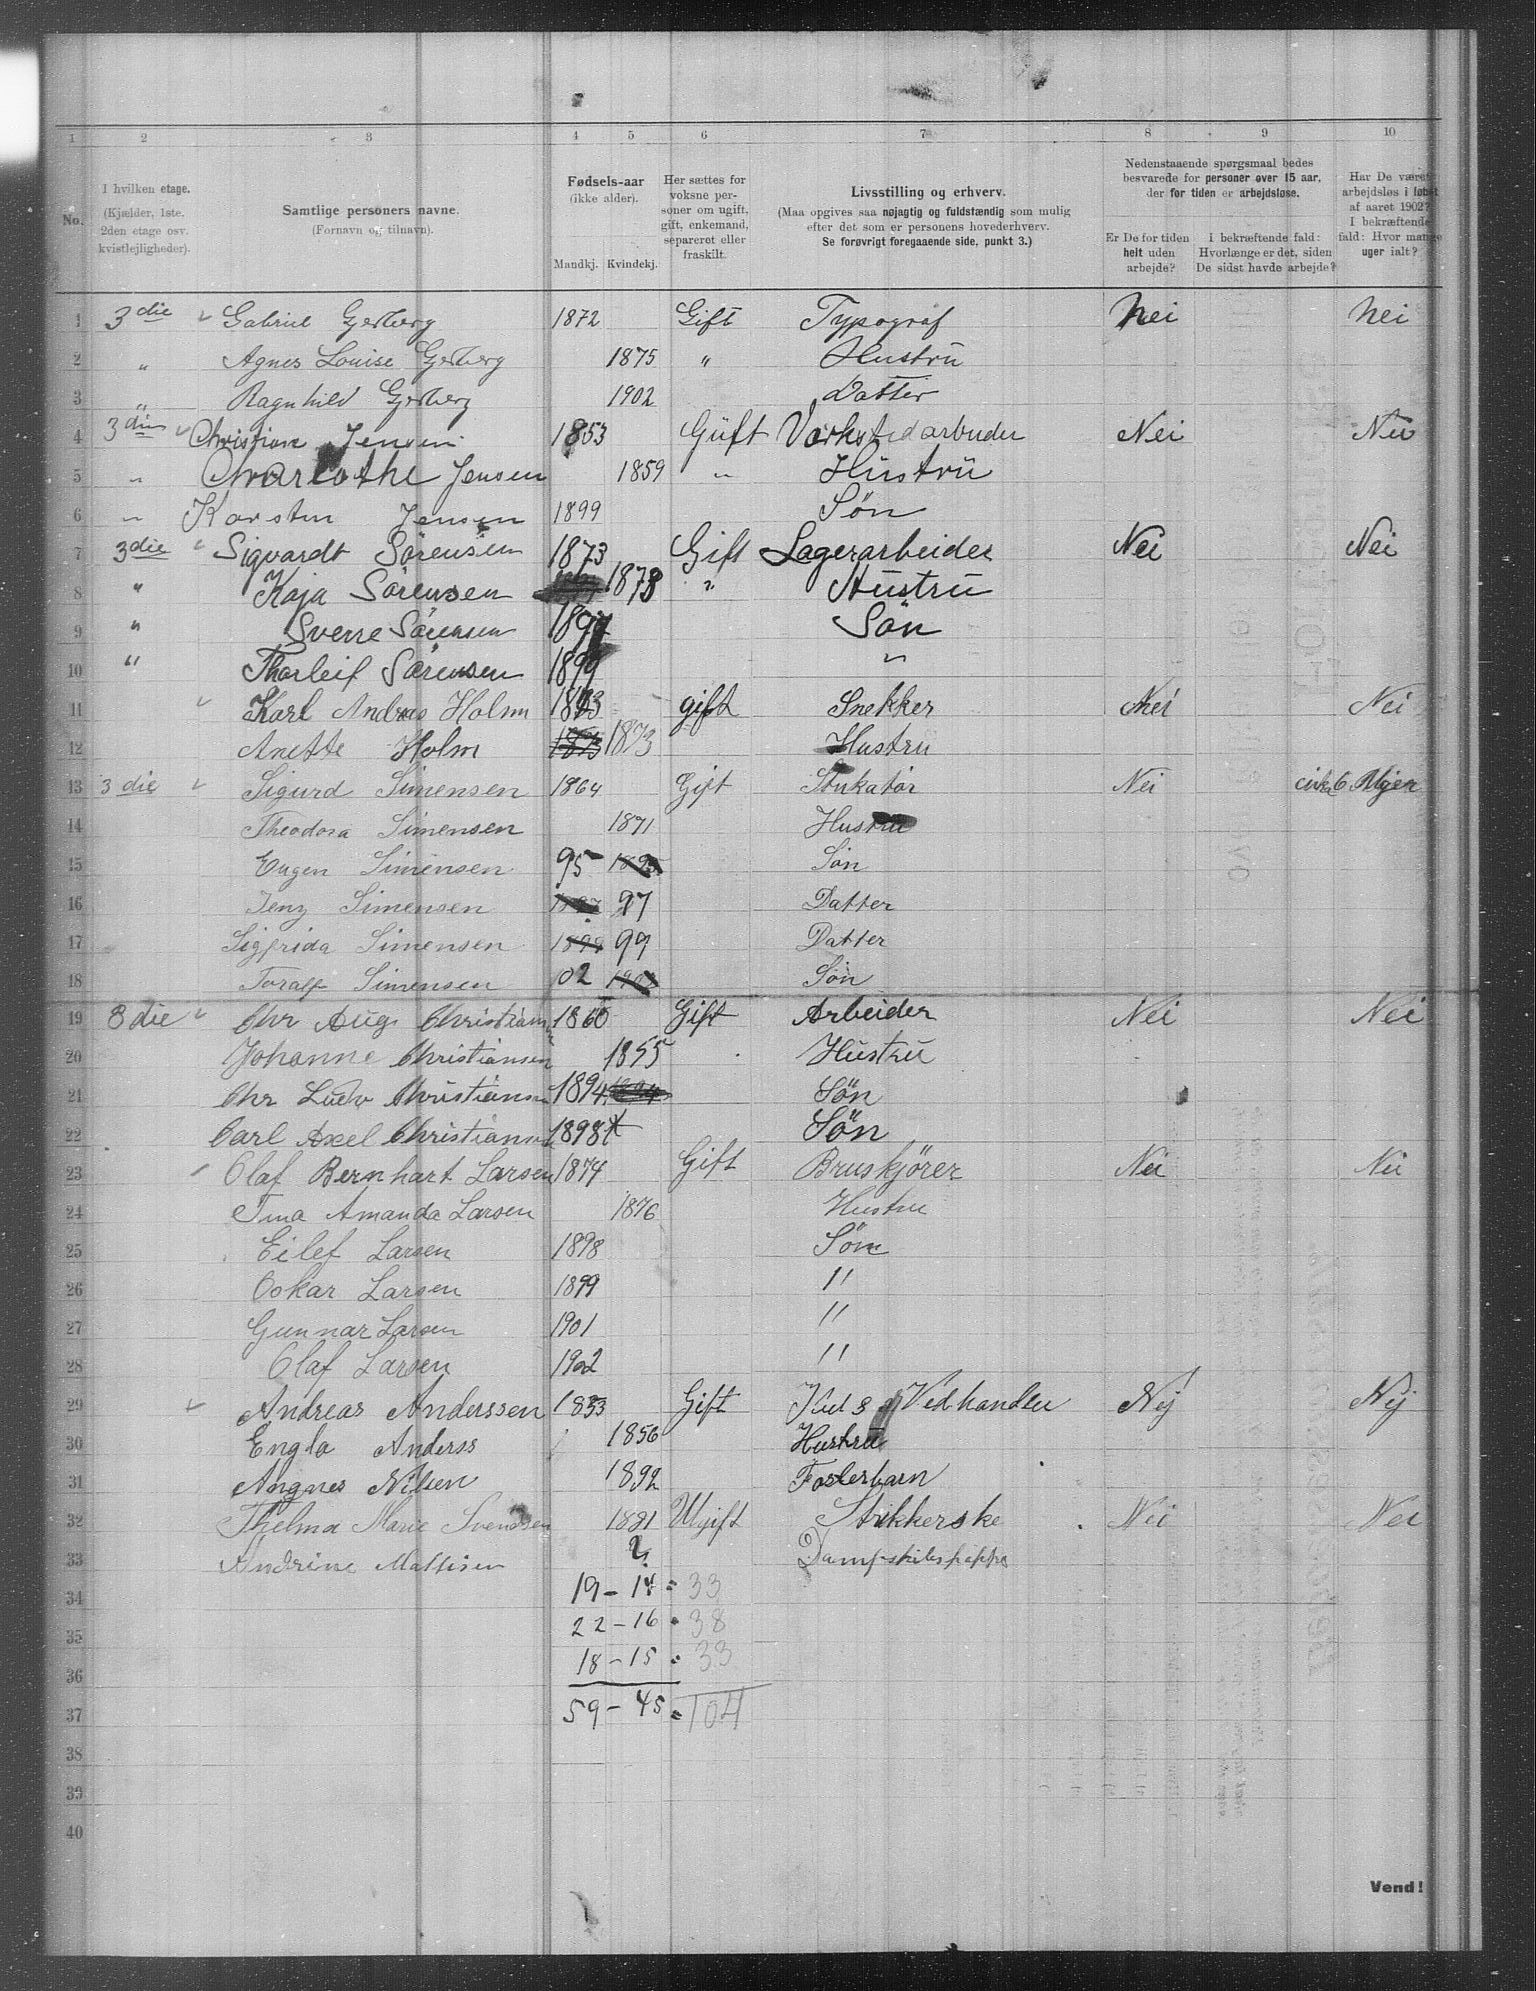 1 2 3 4 5 6 7 8 9 10
No. I hvilken etage. (Kjælder, 1ste. 2den etage osv. kvistlejligheder). Samtlige personers navne. (Fornavn og tilnavn). Fødsels-aar (ikke alder). Mandkj. Kvindekj. Her sættes for voksne personer om ugift, gift, enkemand, separeret eller fraskilt. Livsstilling og erhverv. (Maa opgives saa nøjagtig og fuldstændig som mulig efter det som er personens hovederhverv. Se forøvrigt foregaaende side, punkt 3.) Nedenstaaende spørgsmaal bedes besvarede for personer over 15 aar, der for tiden er arbejdsløse. Er De for tiden helt uden arbejde? I bekræftende fald: Hvorlænge er det, siden De sidst havde arbejde? Har De været arbejdsløs i løbet af aaret 1902? I bekræftende fald: Hvor mange uger ialt?
1 3die Gabriel Gerberg 1872 Gift Typograf Nei Nei
2 " Agnes Louise Gerberg 1875 " Hustru
3 " Ragnhild Gerberg 1902 Datter
4 3die Christian Jensen 1853 Gift Værkstedarbeider Nei Nei
5 " Charlothe Jensen 1859 " Hustru
6 " Karsten Jensen 1899 Søn
7 3die Sigvardt Sørensen 1873 Gift Lagerarbeider Nei Nei
8 " Kaja Sørensen 1878 " Hustru
9 " Sverre Sørensen 1897 Søn
10 " Thorleif Sørensen 1899 "
11 Karl Andreas Holm 1873 gift Snekker Nei Nei
12 Anette Holm 1873 1873 Hustru
13 3die Sigurd Simensen 1864 Gift Stukatør Nei cirka 6 Uger
14 Theodora Simensen 1871 Hustru
15 Eugen Simensen 95 1895 Søn
16 Jeny Simensen 1897 97 Datter
17 Sigfrida Simensen 1899 99 Datter
18 Toralf Simensen 02 1902 Søn
19 3die Chr Aug Christiansen 1860 Gift Arbeider Nei Nei
20 Johanne Christiansen 1855 Hustru
21 Chr Ludv Christiansen 1894 1894 Søn
22 Carl Axel Christiansen 1898 Søn
23 Olaf Bernhart Larsen 1874 Gift Bruskjörer Nei Nei
24 Tina Amanda Larsen 1876 Hustru
25 Eilef Larsen 1898 Søn
26 Oskar Larsen 1899 "
27 Gunnar Larsen 1901 "
28 Olaf Larsen 1902 "
29 Andreas Anderssen 1853 Gift Kul & Vedhandler Nej Nej
30 Engla Anderss 1856 Hustru
31 Angnes Nilsen 1892 Fosterbarn
32 Thelma Marie Svendsen 1881 Ugift Strikkerske Nei Nei
33 Andrine Mathisen ? Dampskibs
34 19 - 14 = 33
35 22 - 16 = 38
36 18 - 15 = 33
37 59 - 45 = 104
38
39
40
Vend!